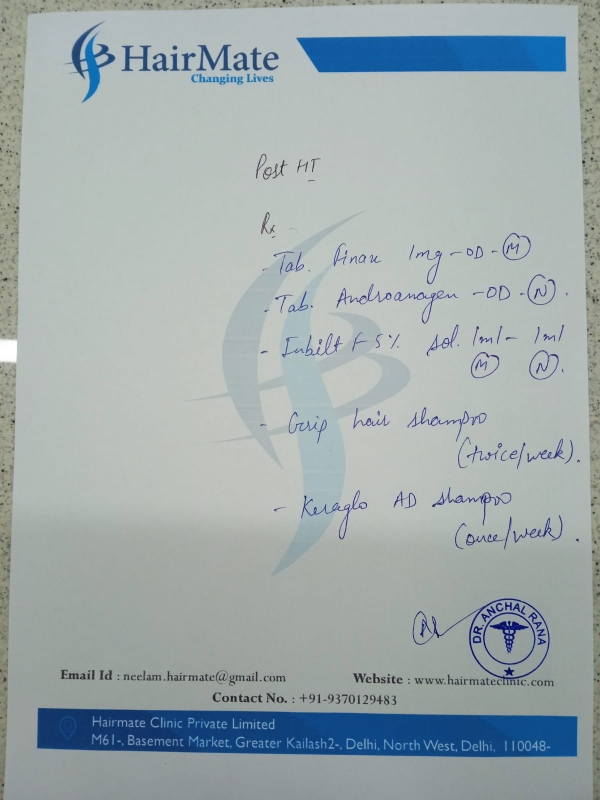 HairMate
Changing Lives
Post HT
Rx
- Tab. Finax 1mg - OD - M
- Tab. Androanagen - OD - N.
- Inbilt F 5% sol. 1ml - 1ml
M N.
- Grip hair shampoo
(twice/week).
- Keraglo AD shampoo
(once/week).
DR. ANCHAL RANA
Email Id : neelam.hairmate@gmail.com
Website : www.hairmateclinic.com
Contact No. : +91-9370129483
Hairmate Clinic Private Limited
M61-, Basement Market, Greater Kailash2-, Delhi, North West, Delhi, 110048-